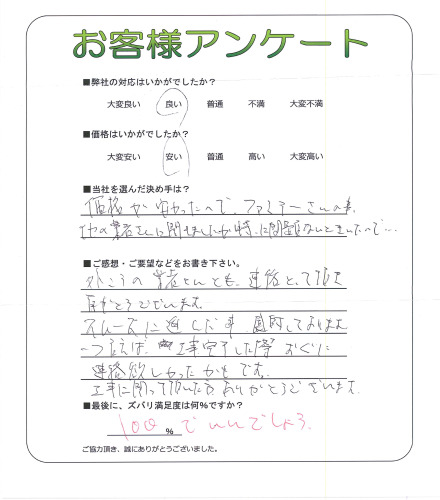 お客様アンケート
■弊社の対応はいかがでしたか？
大変良い 良い 普通 不満 大変不満
■価格はいかがでしたか？
大変安い 安い 普通 高い 大変高い
■当社を選んだ決め手は？
価格が安かったので、ファミテーさんの事
他の業者さんに聞きましたが特に問題ないとましたので…
■ご感想・ご要望などをお書き下さい。
外こうの業者さんとも、連絡とって頂き
ありがとうございます。
スムーズに進んだ事、感謝しております
一つ言えば、工事完了した際すぐに
連絡欲しかったかもです。
工事に関って頂いた方ありがとうございます。
■最後に、ズバリ満足度は何%ですか？
100 % でいいでしょう。
ご協力頂き、誠にありがとうございました。